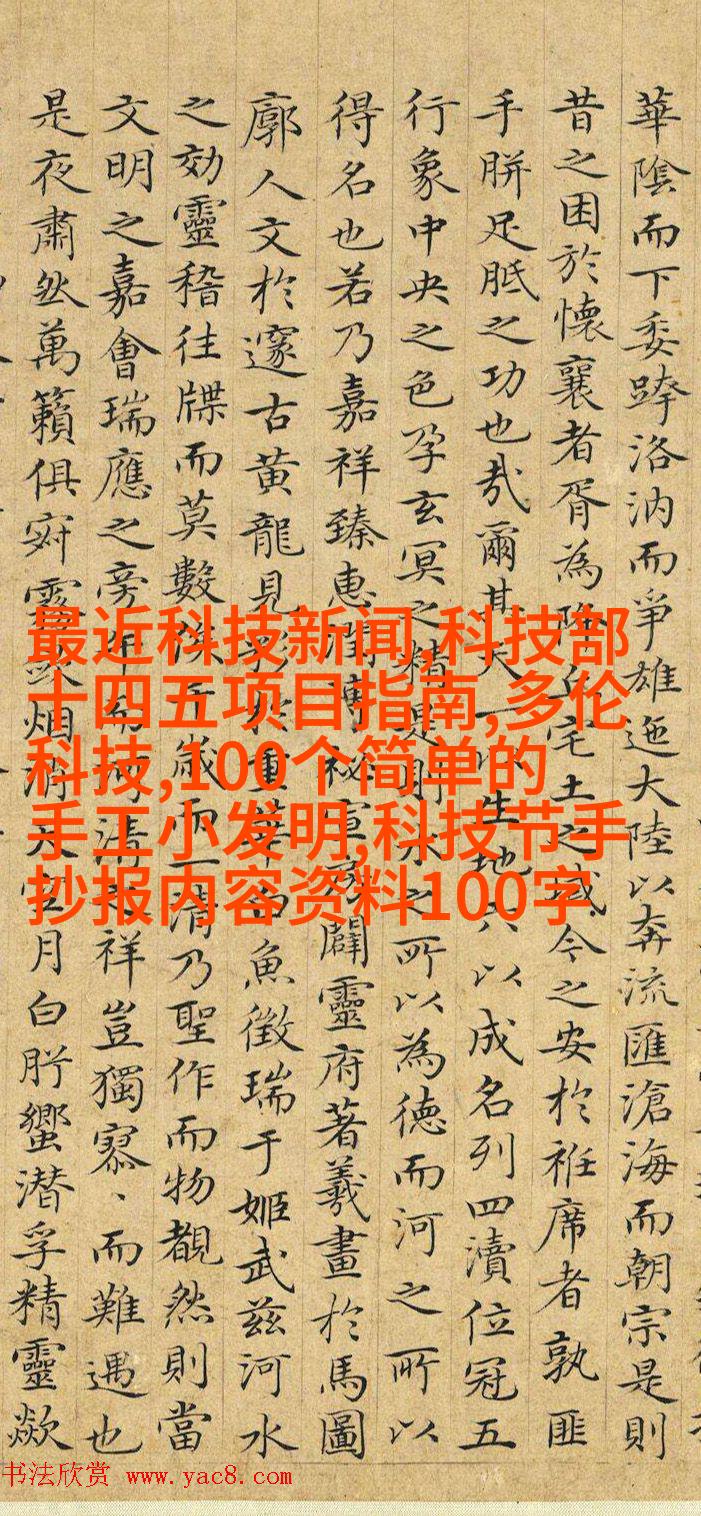 華陰而下委跨洛汭而爭雄迤大陸以奔流匯滄海而朝宗是則
昔之困於懷襄者胥為降丘宅土之域今之安於袵席者孰匪
手胼足胝之功也哉爾其天一以生地六以成名列四瀆位冠五
行象中央之色孕玄冥之精是則水之所以為德而河之所以
得名也若乃嘉祥臻惠秘闢靈府著羲畫於馬圖
廓人文於邃古黃龍見彩於重華白魚徵瑞于姬武茲河水
之効靈稽往牒而莫數俟千歲而一清乃聖作而物覩然則當
文明之嘉會瑞應之旁清祥豈獨寡〻而難遇也
是夜肅然萬籟俱寂露烟消天空月白肸蠁潜孚精靈歘
最近科技新闻,科技部
十四五项目指南,多伦
科技,100个简单的
手工小发明,科技节手
抄报内容资料100字
书法欣赏 www.yac8.com